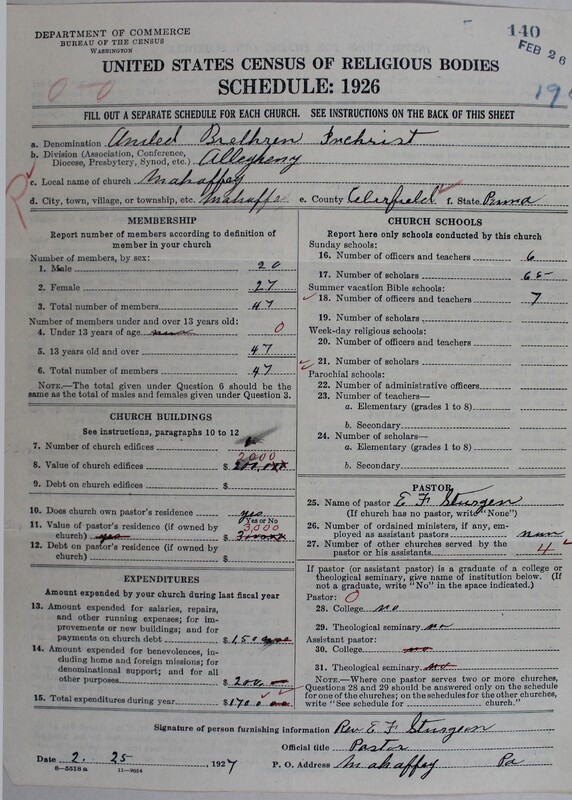 DEPARTMENT OF COMMERCE
BUREAU OF THE CENSUS
WASHINGTON
140
FEB 26
UNITED STATES CENSUS OF RELIGIOUS BODIES
SCHEDULE: 1926
0-0
FILL OUT A SEPARATE SCHEDULE FOR EACH CHURCH. SEE INSTRUCTIONS ON THE BACK OF THIS SHEET
a. Denomination United Brethren Inchrist
b. Division (Association, Conference, Diocese, Presbytery, Synod, etc.) Allegheny
c. Local name of church Mahaffey
d. City, town, village, or township, etc. Mahaffe e. County Clirfield f. State Penna
MEMBERSHIP
Report number of members according to definition of member in your church
Number of members, by sex:
1. Male 20
2. Female 27
3. Total number of members 47
Number of members under and over 13 years old:
4. Under 13 years of age 0
5. 13 years old and over 47
6. Total number of members 47
NOTE.—The total given under Question 6 should be the same as the total of males and females given under Question 3.
CHURCH BUILDINGS
See instructions, paragraphs 10 to 12
7. Number of church edifices
8. Value of church edifices $ 2000
9. Debt on church edifices $
10. Does church own pastor's residence yes
Yes or No
11. Value of pastor's residence (if owned by church) yes $ 3,000
12. Debt on pastor's residence (if owned by church) $
EXPENDITURES
Amount expended by your church during last fiscal year
13. Amount expended for salaries, repairs, and other running expenses; for improvements or new buildings; and for payments on church debt $ 1,500
14. Amount expended for benevolences, including home and foreign missions; for denominational support; and for all other purposes $ 200
15. Total expenditures during year $ 1700
CHURCH SCHOOLS
Report here only schools conducted by this church
Sunday schools:
16. Number of officers and teachers 6
17. Number of scholars 65
Summer vacation Bible schools:
18. Number of officers and teachers 7
19. Number of scholars
Week-day religious schools:
20. Number of officers and teachers
21. Number of scholars
Parochial schools:
22. Number of administrative officers
23. Number of teachers—
a. Elementary (grades 1 to 8)
b. Secondary
24. Number of scholars—
a. Elementary (grades 1 to 8)
b. Secondary
PASTOR
25. Name of pastor E F Sturgen
(If church has no pastor, write "None")
26. Number of ordained ministers, if any, employed as assistant pastors
27. Number of other churches served by the pastor or his assistants 4
If pastor (or assistant pastor) is a graduate of a college or theological seminary, give name of institution below. (If not a graduate, write "No" in the space indicated.)
Pastor: 0
28. College no
29. Theological seminary no
Assistant pastor:
30. College no
31. Theological seminary no
NOTE.—Where one pastor serves two or more churches, Questions 28 and 29 should be answered only on the schedule for one of the churches; on the schedules for the other churches, write "See schedule for church."
Signature of person furnishing information Rev E F Sturgeon
Official title Pastor
Date 2. 25, 1927 P. O. Address Mahaffey Pa
8—5518 a 11—9054